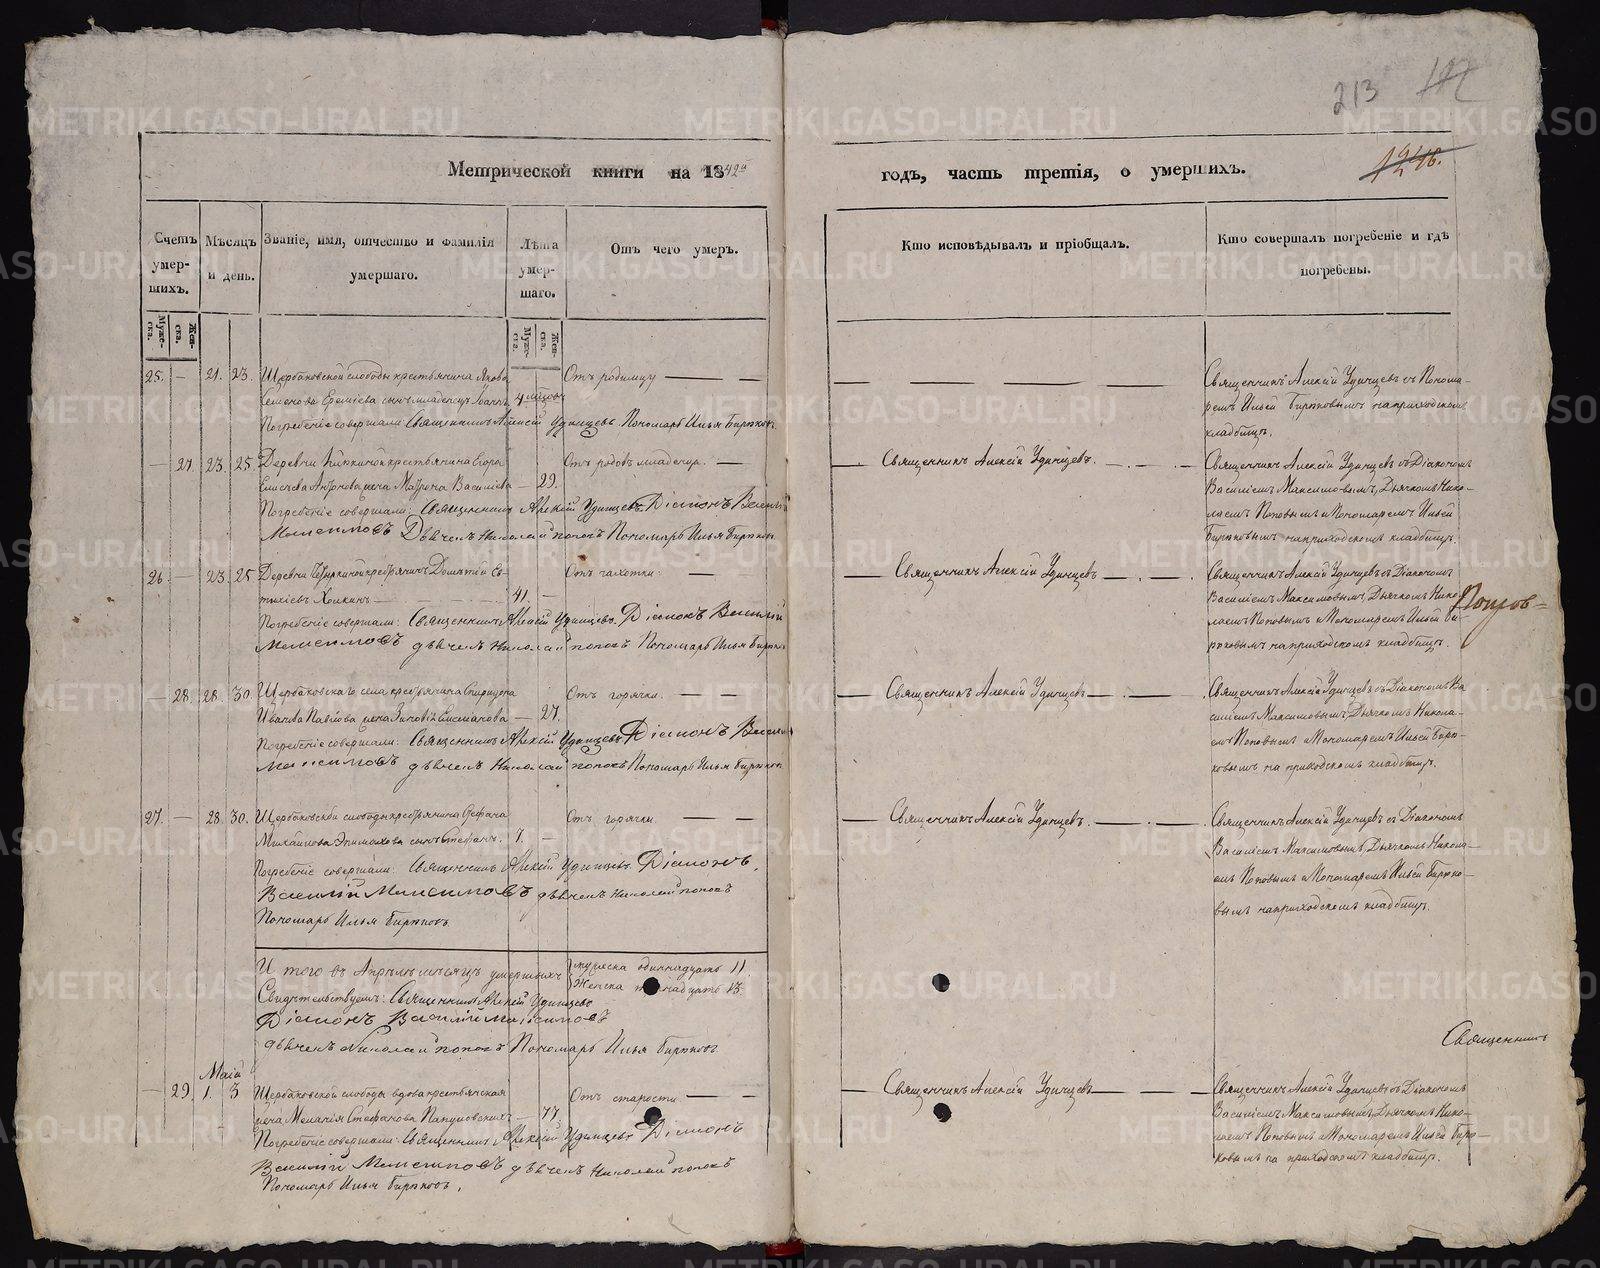 213
Метрической книги на 1842й годъ, часть третія, о умершихъ.
Счетъ умер-шихъ.
Мѣсяцъ и день.
Званіе, имя, отчество и фамилія умершаго.
Лѣта умер-шаго.
Отъ чего умеръ.
Кто исповѣдывалъ и пріобщалъ.
Кто совершалъ погребеніе и гдѣ погребены.
Муже-ска. Жен-ска.
Муже-ска. Жен-ска.
25. — 21. 23. Щербаковской слободы крестьянина Якова
Семенова Еремѣева сынъ младенецъ Іоаннъ
Отъ родимцу
Погребеніе совершали: Священникъ Алексій Удинцевъ. Пономарь Илья Бирюковъ.
Священникъ Алексій Удинцевъ съ Понома-
ремъ Ильей Бирюковымъ на приходскомъ
кладбищѣ.
— 27. 23. 25. Деревни крестьянина Егора
Елисѣева жена Матрона Васильева — 29.
Отъ родовъ младенца.
Погребеніе совершали: Священникъ Алексій Удинцевъ. Діаконъ Василій
Максимовъ Дьячекъ Николай Поповъ Пономарь Илья Бирюковъ
Священникъ Алексій Удинцевъ.
Священникъ Алексій Удинцевъ съ Діакономъ
Василіемъ Максимовымъ, Дьячкомъ Нико-
лаемъ Поповымъ и Пономаремъ Ильей
Бирюковымъ на приходскомъ кладбищѣ.
26. — 23. 25 Деревни крестьянинъ Дометій Ев-
тихіевъ 41. —
Отъ чахотки.
Погребеніе совершали: Священникъ Алексій Удинцевъ. Діаконъ Василій
Максимовъ дьячекъ Николай Поповъ Пономарь Илья Бирюковъ
Священникъ Алексій Удинцевъ
Священникъ Алексій Удинцевъ съ Діакономъ
Василіемъ Максимовымъ, Дьячкомъ Нико-
лаемъ Поповымъ и Пономаремъ Ильей Би-
рюковымъ на приходскомъ кладбищѣ.
— 28. 28. 30. Щербаковскаго села крестьянина Спиридона
Иванова Павлова жена — 27.
Отъ горячки.
Погребеніе совершали: Священникъ Алексій Удинцевъ. Діаконъ Василій
Максимовъ дьячекъ Николай Поповъ Пономарь Илья Бирюковъ
Священникъ Алексій Удинцевъ
Священникъ Алексій Удинцевъ съ Діакономъ Ва-
силіемъ Максимовымъ, Дьячкомъ Никола-
емъ Поповымъ и Пономаремъ Ильей Бирю-
ковымъ на приходскомъ кладбищѣ.
27. — 28. 30. Щербаковской слободы крестьянина Стефана
Михайлова сынъ Стефанъ. 7. —
Отъ горячки.
Погребеніе совершали: Священникъ Алексій Удинцевъ. Діаконъ,
Василій Максимовъ дьячекъ Николай Поповъ
Пономарь Илья Бирюковъ.
Священникъ Алексій Удинцевъ.
Священникъ Алексій Удинцевъ съ Діакономъ
Василіемъ Максимовымъ, Дьячкомъ Никола-
емъ Поповымъ и Пономаремъ Ильей Бирюко-
вымъ на приходскомъ кладбищѣ.
И того въ Апрѣлѣ мѣсяцѣ умершихъ мужеска одиннадцать 11.
Женска тринадцать 13.
Свидѣтельствуемъ: Священникъ Алексій Удинцевъ
Діаконъ Василій Максимовъ
дьячекъ Николай Поповъ Пономарь Илья Бирюковъ
Священникъ
Маій
— 29. 1. 3 Щербаковской слободы вдова крестьянская
жена Меланія Стефанова — 77
Отъ старости
Погребеніе совершали: Священникъ Алексій Удинцевъ Діаконъ
Василій Максимовъ дьячекъ Николай Поповъ
Пономарь Илья Бирюковъ.
Священникъ Алексій Удинцевъ
Священникъ Алексій Удинцевъ съ Діакономъ
Василіемъ Максимовымъ, Дьячкомъ Нико-
лаемъ Поповымъ и Пономаремъ Ильей Бирю-
ковымъ на приходскомъ кладбищѣ.
METRIKI.GASO-URAL.RU